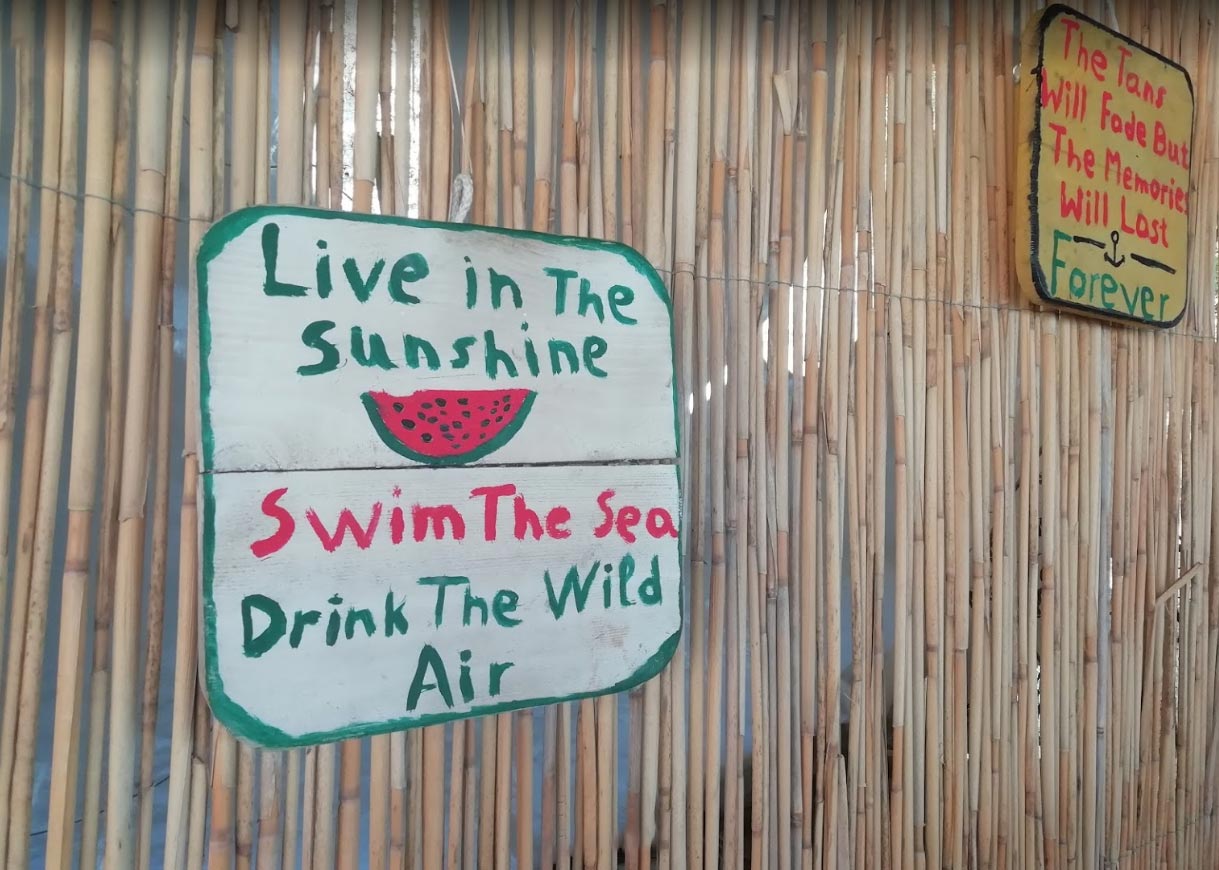 Live in The
Sunshine
Swim The Sea
Drink The Wild
Air
The Tans
Will Fade But
The Memories
Will Last
Forever